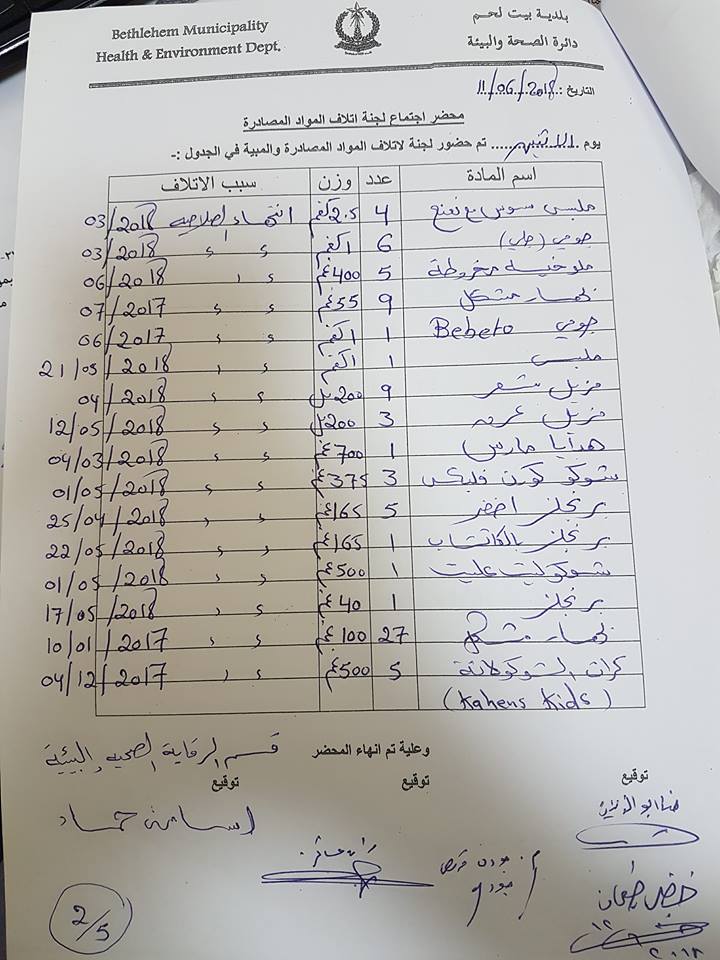 Bethlehem Municipality
Health & Environment Dept.
بلدية بيت لحم
دائرة الصحة والبيئة
التاريخ: 11/06/2018
محضر اجتماع لجنة اتلاف المواد المصادرة
يوم الاثنين تم حضور لجنة لاتلاف المواد المصادرة والمبية في الجدول :-
اسم المادة عدد وزن سبب الاتلاف
ملبس سوس مع نعنع 4 2.5 كغم انتهاء الصلاحية 03/2018
جومي (جلي) 6 1 كغم 03/2018
ملوخية مخروطة 5 400 غم 06/2018
مشكل 9 55 غم 07/2017
جومي Bebeto 1 1 كغم 06/2017
ملبس 1 1 كغم 21/05/2018
مزيل شعر 9 200 مل 04/2018
مزيل عرق 3 200 مل 12/05/2018
هدايا مارس 1 700 غم 04/03/2018
شوكو كورن فليكس 3 375 غم 01/05/2018
برنجلز اخضر 5 165 غم 25/04/2018
برنجلز بالكاتشاب 1 165 غم 22/05/2018
شوكوليت 1 500 غم 01/05/2018
برنجلز 1 40 غم 17/05/2018
مشكل 27 100 غم 10/01/2017
كرات الشوكولاتة 5 500 غم 04/12/2017
(Kahens Kids)
وعلية تم انهاء المحضر
قسم الرقابة الصحية والبيئية
توقيع توقيع توقيع
اسامة حماد
2/5